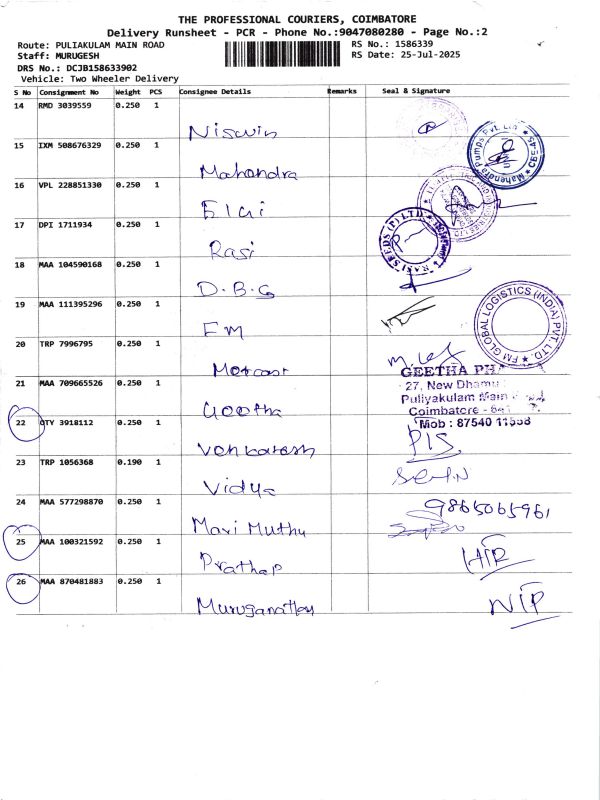 THE PROFESSIONAL COURIERS, COIMBATORE
Delivery Runsheet - PCR - Phone No.:9047080280 - Page No.:2
Route: PULIAKULAM MAIN ROAD
RS No.: 1586339
Staff: MURUGESH
RS Date: 25-Jul-2025
DRS No.: DCJB158633902
Vehicle: Two Wheeler Delivery
S No Consignment No Weight PCS Consignee Details Remarks Seal & Signature
14 RMD 3039559 0.250 1
Niswin
15 IXM 508676329 0.250 1
Mahendra
Mahendra Pumps Pvt. Ltd
CBE-45
16 VPL 228851330 0.250 1
Elgi
17 DPI 1711934 0.250 1
Rasi
RASI SEEDS (P) LTD
18 MAA 104590168 0.250 1
D.B.G
19 MAA 111395296 0.250 1
FM
FM GLOBAL LOGISTICS (INDIA) PVT. LTD.
20 TRP 7996795 0.250 1
GEETHA PHA
21 MAA 709665526 0.250 1
27, New Dhamu
Puliyakulam Main
Geetha
Coimbatore - 641
22 QTY 3918112 0.250 1
Mob : 87540 11558
Venkatesh
23 TRP 1056368 0.190 1
Vidya
24 MAA 577298870 0.250 1
9865065961
Mari Muthu
25 MAA 100321592 0.250 1
Prathap
26 MAA 870481883 0.250 1
Muruganathan